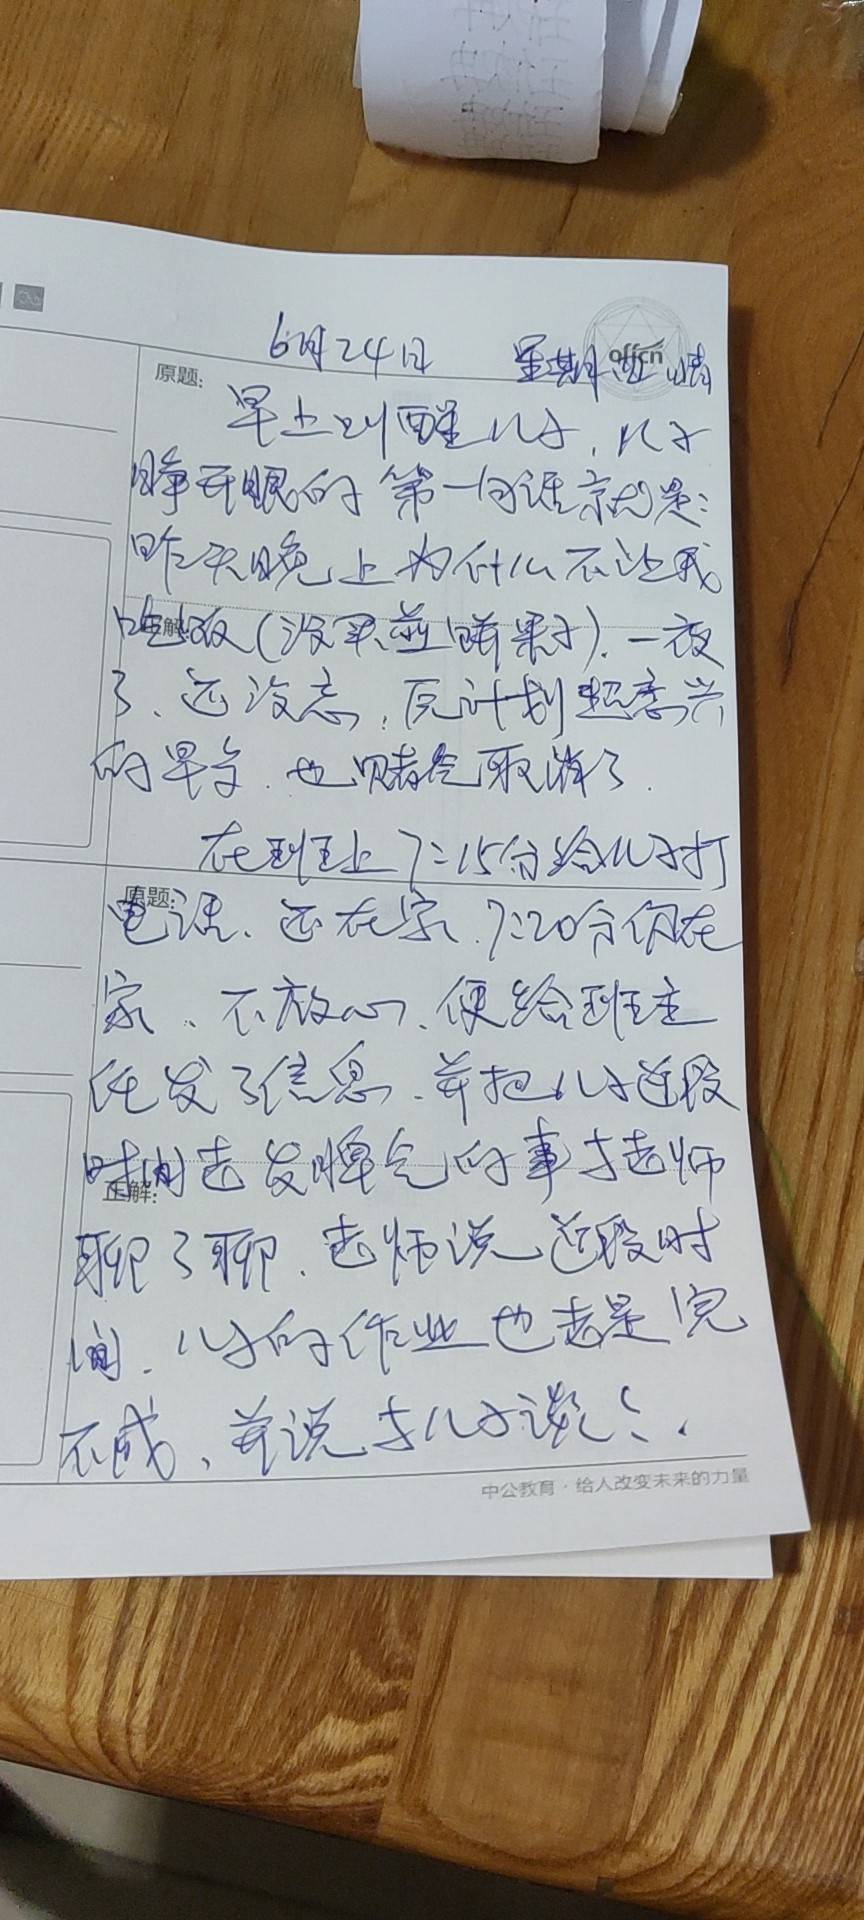 6月24日 星期 晴
offcn
原题:
早上叫醒儿子,儿子
睁开眼的第一句话就是:
昨天晚上为什么不让我
吃饭(没买煎饼果子).一夜
正解:
了、还没忘,原计划起高兴
的早 .也赌气取消了.
在班上7:15分给儿子打
原题:
电话、还在家.7:20分仍在
家、不放心、便给班主
任发了信息、并把儿子近段
时间老发脾气的事与老师
正解:
聊了聊、老师说近段时
间、儿子的作业也老是完
不成、并说与儿子谈谈.
中公教育·给人改变未来的力量